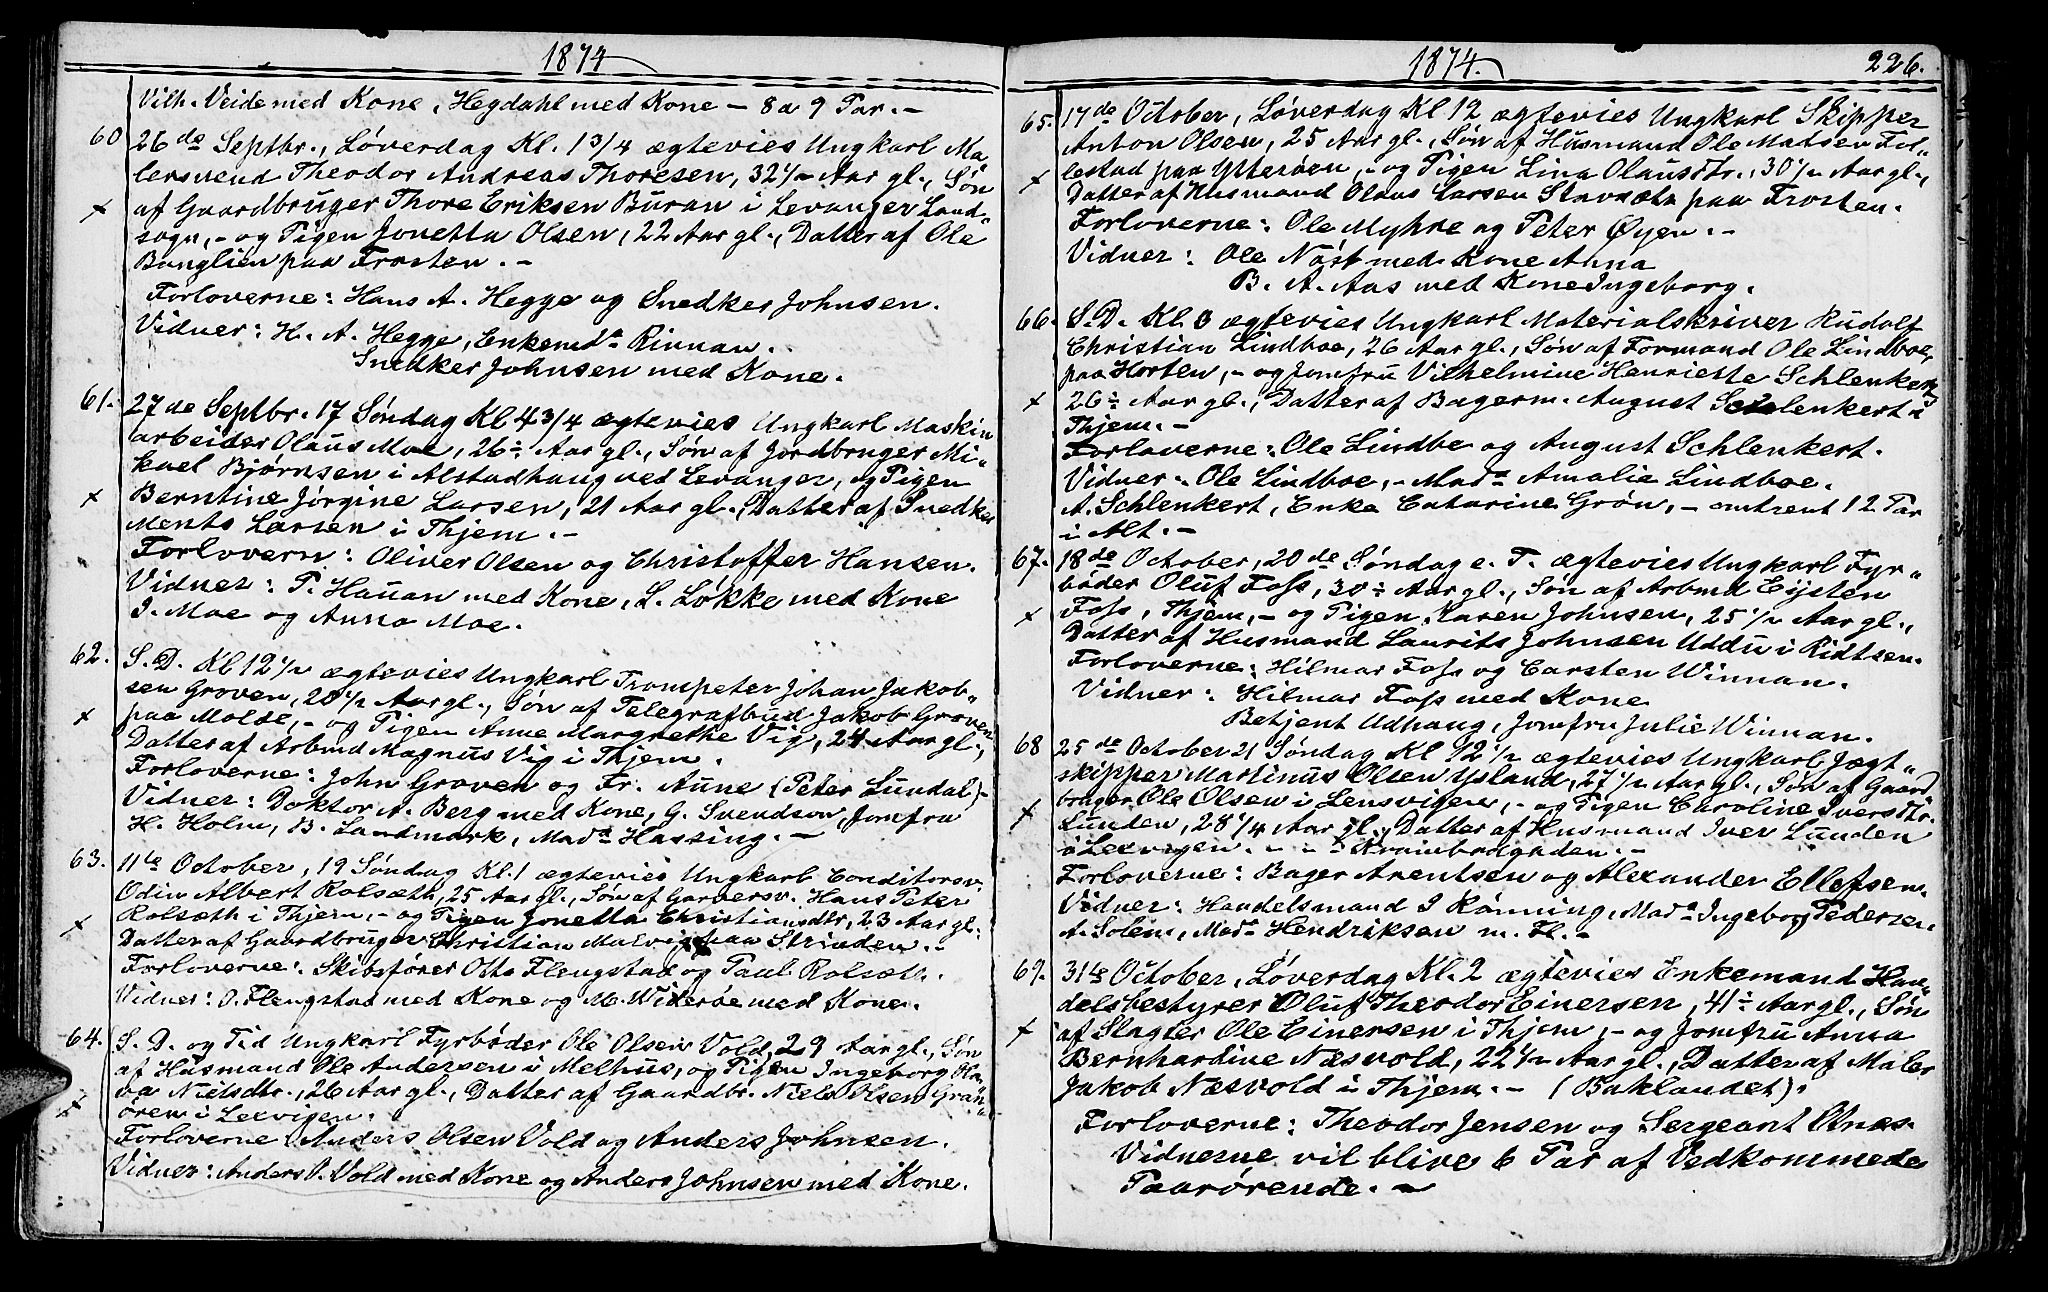 1874
Vilh. Veide med Kone, Hegdahl med Kone – 8 a 9 Par. –
60 26de Septbr., Løverdag Kl. 1 3/4 ægtevies Ungkarl Ma„
lersvend Theodor Andreas Thoresen, 32 1/2 Aar gl., Søn
x af Gaardbruger Thore Eriksen Buran i Levanger Land„
sogn, – og Pigen Jonetta Olsen, 22 Aar gl., Datter af Ole
Banglien paa Frosten. –
Forloverne: Hans A. Hegge og Snedker Johnsen.
Vidner: H. A. Hegge, Enkemda Rinnan.
Snedker Johnsen med Kone.
61. 27de Septbr. 17 Søndag Kl 4 3/4 ægtevies Ungkarl Maskin
arbeider Olaus Moe, 26 ÷ Aar gl., Søn af Jordbruger Mi„
kael Bjørnsen i Alstadhaug ved Levanger, og Pigen
x Berntine Jørgine Larsen, 21 Aar gl., Datter af Snedker
Ments Larsen i Thjem. –
Forlovern: Oliver Olsen og Christoffer Hansen.
Vidner: P. Hauan med Kone, L. Løkke med Kone
I. Moe og Anna Moe.
62. S. D. Kl 12 1/2 ægtevies Ungkarl Trompeter Johan Jakob„
sen Groven, 28 1/2 Aar gl., Søn af Telegrafbud Jakob Groven
x paa Molde, – og Pigen Anne Margrethe Vig, 24 Aar gl.,
Datter af Arbmd Magnus Vig i Thjem.
Forloverne: John Groven og Fr. Aune (Peter Lundal) –
Vidner: Doktor A. Berg med Kone, G. Svendson, Jomfru
H. Holm, B. Landmark, Mada Hassing. –
63. 11te October, 19 Søndag Kl. 1 ægtevies Ungkarl Conditorsv.
Odin Albert Rolseth, 25 Aar gl., Søn af Garversv. Hans Peter
x Rolseth i Thjem, – og Pigen Jonetta Christiansdtr, 23 Aar gl.,
Datter af Gaardbruger Christian Malvig paa Strinden. –
Forloverne: Skibsfører Otto Flengstad og Paul Rolseth.
Vidner: O. Flengstad med Kone og M. Widerøe med Kone.
64. S. D. og Tid Ungkarl Fyrbøder Ole Olsen Vold, 29 Aar gl., Søn
af Husmand Ole Andersen i Melhus, og Pigen Ingeborg Ola„
x va Nielsdtr., 26 Aar gl., Datter af Gaardbr. Niels Olsen Gran„
ören i Lexvigen.
Forloverne Anders Olsen Vold og Anders Johnsen.
Vidner: Anders O. Vold med Kone og Anders Johnsen med Kone.
1874. 226.
65. 17de October, Løverdag Kl 12 ægtevies Ungkarl Skipper
Anton Olsen, 25 Aar gl., Søn af Husmand Ole Matsen For„
x lestad paa Ytterøen, – og Pigen Lina Olausdtr., 30 1/2 Aar gl.,
Datter af Husmand Olaus Larsen Stavsætn paa Frosten.
Forloverne: Ole Myhre og Peter Øyen. –
Vidner: Ole Nøst med Kone Anna
B. A. Aas med Kone Ingeborg.
66. S. D. Kl. 3 ægtevies Ungkarl Materialskriver Rudolf
Christian Lindboe, 26 Aar gl., Søn af Formand Ole Lindboe,
paa Horten, – og Jomfru Vilhelmine Henriette Schlenkert,
x 26 ÷ Aar gl., Datter af Bagerm. August Schlenkert i
Thjem. –
Forloverne: Ole Lindbe og August Schlenkert.
Vidner: Ole Lindboe, – Mada Amalie Lindboe.
A. Schlenkert, Enke Catarine Grøn, – omtrent 12 Par
i Alt. –
67. 18de October, 20de Søndag e. T. ægtevies Ungkarl Fyr„
bøder Oluf Foss, 30 ÷ Aar gl., Søn af Arbmd Eysten
x Foss, Thjem, – og Pigen Karen Johnsen, 25 1/2 Aar gl.,
Datter af Husmand Laurits Johnsen Uddu i Ridtsen.
Forloverne: Hilmar Foss og Carsten Winnan.
Vidner: Hilmar Foss med Kone
Betjent Udhaug, Jomfru Julie Winnan.
68 25de October 21 Søndag Kl 12 1/2 ægtevies Ungkarl Jægt„
skipper Martinus Olsen Ysland, 27 1/2 Aar gl., Søn af Gaard
x bruger Ole Olsen i Lensvigen, – og Pigen Caroline Iversdtr.
Lunden, 28 1/4 Aar gl., Datter af Husmand Iver Lunden
i Lexvigen. – – Krambodgaden. –
Forloverne: Bager Arentsen og Alexander Ellefsen.
Vidner: Handelsmand I Rønning, Mada Ingeborg Pedersen,
A. Solem, Mada Hendriksen m. Fl. –
69. 31te October, Løverdag Kl. 2 ægtevies Enkemand Han„
delsbestyrer Oluf Theodor Einersen, 41 ÷ Aar gl., Søn
x af Slagter Ole Einersen i Thjem, – og Jomfru Anna
Bernhardine Næsvold, 22 1/2 Aar gl., Datter af Maler
Jakob Næsvold i Thjem. – (Baklandet).
Forloverne: Theodor Jensen og Sergeant Otnæs.
Vidnerne vil blive 6 Par af Vedkommede
Paarørende. –